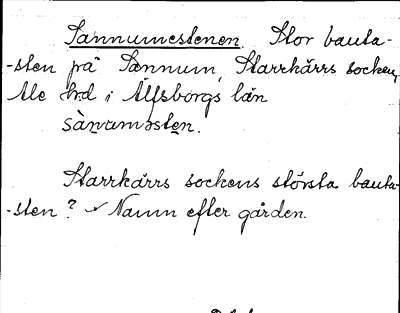 Sannumestenen. Stor bauta-
-sten på Sannum, Starrkärrs socken,
Ale hd i Älfsborgs län
sànuməsten.
Starrkärrs sockens största bauta-
-sten? Namn efter gården.